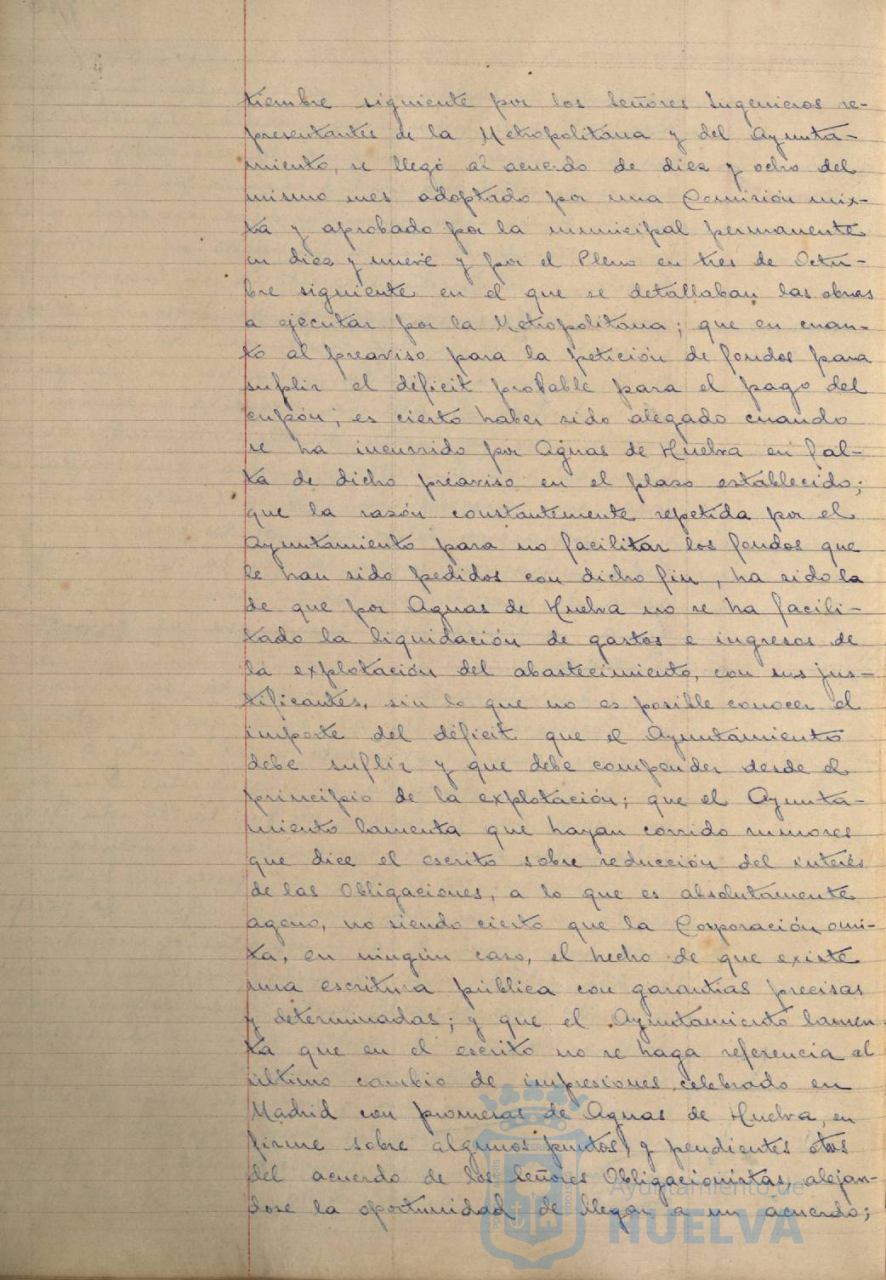 tiembre siguiente por los Señores Ingenieros re-
presentantes de la Metropolitana y del Ayunta-
miento, se llegó al acuerdo de diez y ocho del
mismo mes adoptado por una Comisión mix-
ta y aprobado por la municipal permanente
en diez y nueve y por el Pleno en tres de Octu-
bre siguiente en el que se detallaban las obras
a ejecutar por la Metropolitana; que en cuan-
to al preaviso para la petición de fondos para
suplir el déficit probable para el pago del
cupón; es cierto haber sido alegado cuando
se ha incurrido por Aguas de Huelva en fal-
ta de dicho preaviso en el plazo establecido;
que la razón constantemente repetida por el
Ayuntamiento para no facilitar los fondos que
le han sido pedidos con dicho fin, ha sido la
de que por Aguas de Huelva no se ha facili-
tado la liquidación de gastos e ingresos de
la explotación del abastecimiento, con sus jus-
tificantes, sin lo que no es posible conocer el
importe del déficit que el Ayuntamiento
debe suplir y que debe compender desde el
principio de la explotación; que el Ayunta-
miento lamenta que hayan corrido rumores
que dice el escrito sobre reducción del interés
de las Obligaciones, a lo que es absolutamente
ageno, no siendo cierto que la Corporación omi-
ta, en ningún caso, el hecho de que existe
una escritura pública con garantías precisas
y determinadas; y que el Ayuntamiento lamen
ta que en el escrito no se haga referencia al
último cambio de impresiones celebrado en
Madrid con promesas de Aguas de Huelva, en
firme sobre algunos puntos, y pendientes otros
del acuerdo de los Señores Obligacionistas, alejan-
dose la oportunidad de llegar a un acuerdo;
Ayuntamiento de
HUELVA